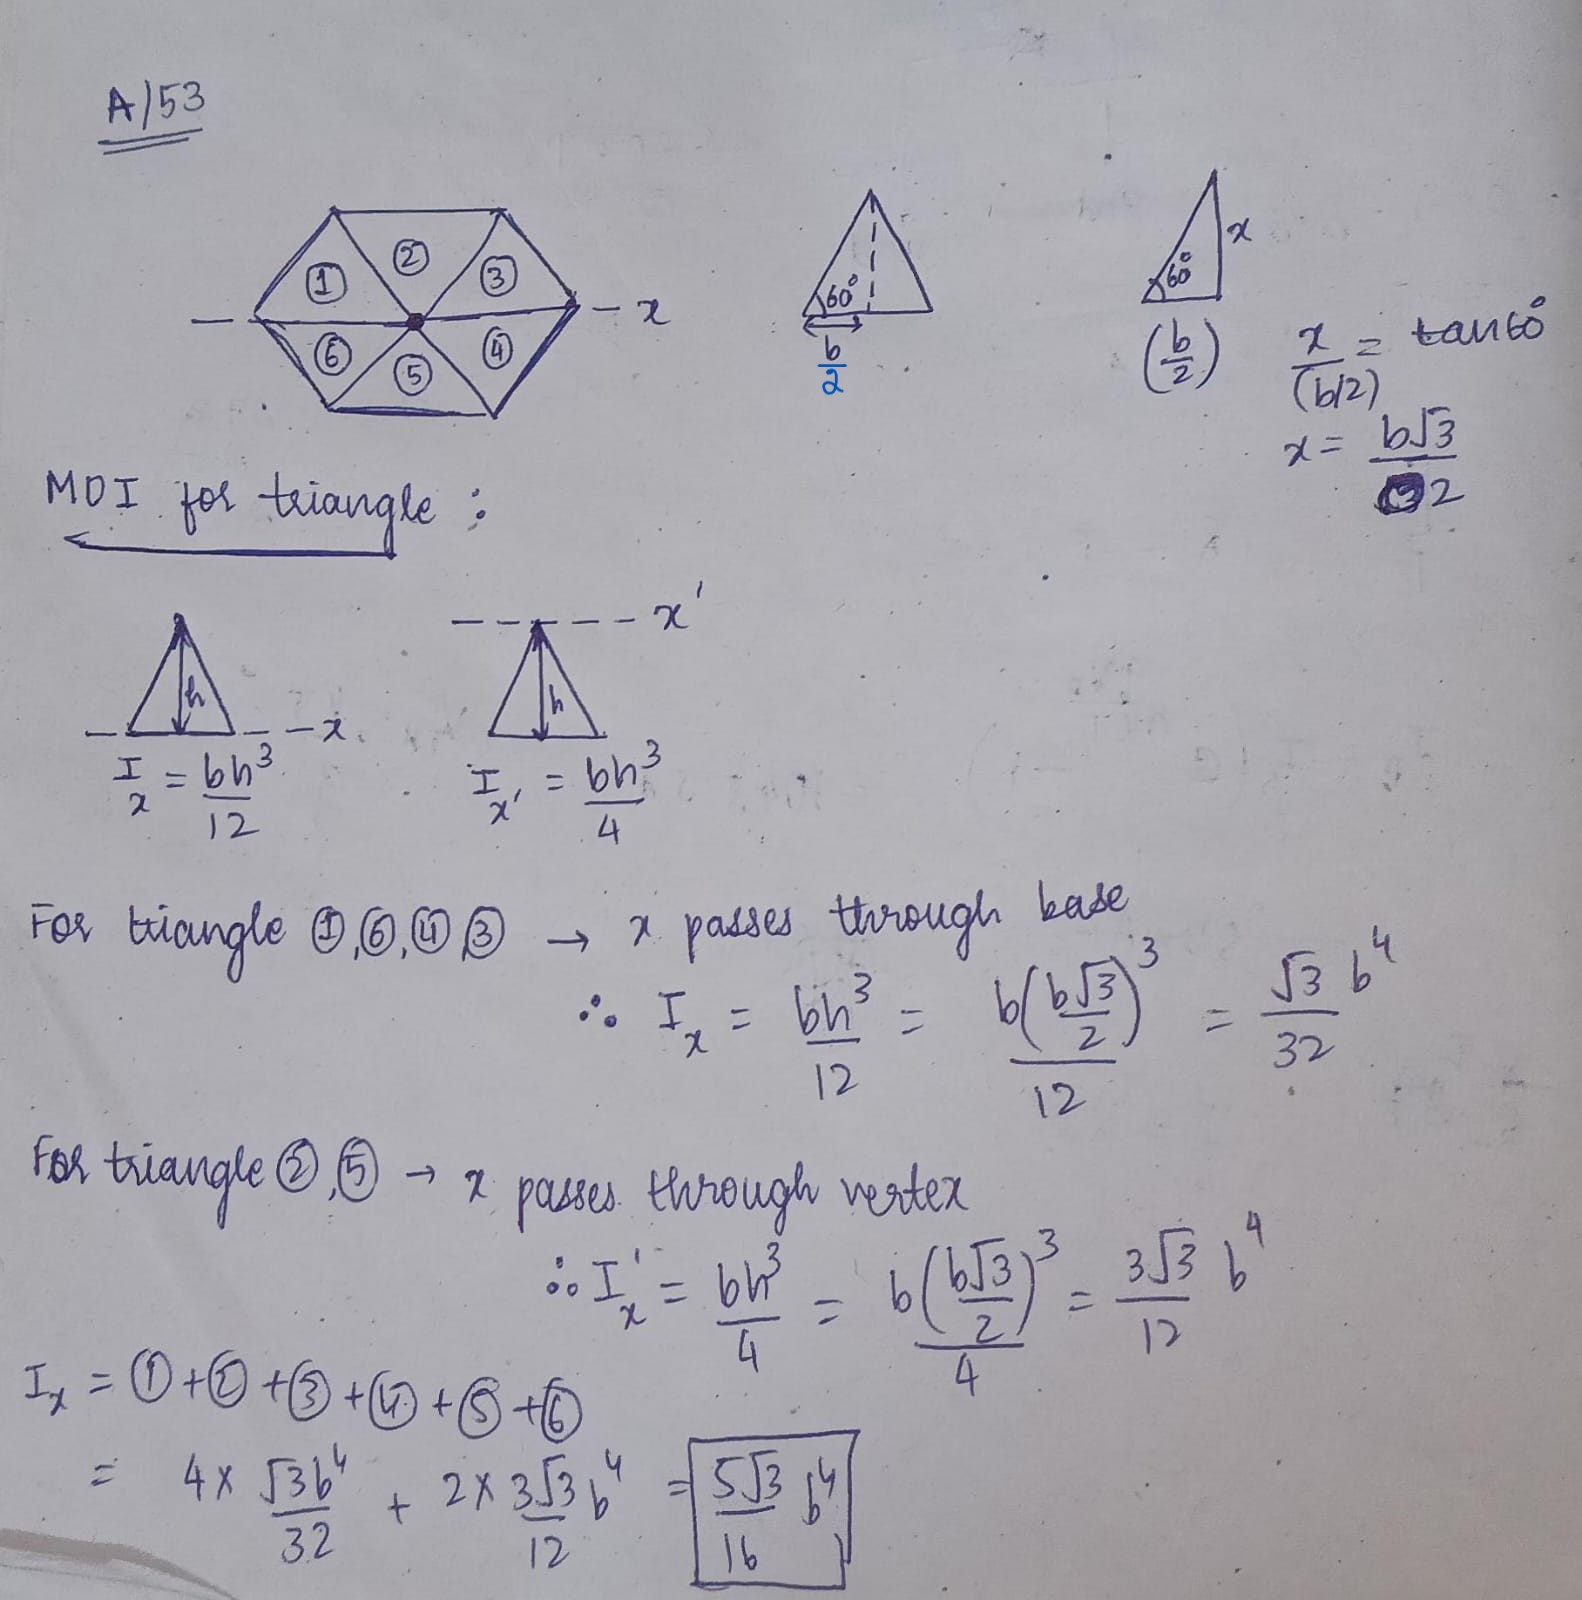 A/53
① ② ③ ④ ⑤ ⑥
x
60°
b/2
60°
x
(b/2)
x/(b/2) = tan60°
x = b√3/2
MOI for triangle :
h
x
h
x'
I_x = bh³/12
I_x' = bh³/4
For triangle ①,⑥,④,③ → x passes through base
∴ I_x = bh³/12 = b(b√3/2)³/12 = √3 b⁴/32
For triangle ②,⑤ → x passes through vertex
∴ I_x' = bh³/4 = b(b√3/2)³/4 = 3√3/12 b⁴
I_x = ①+②+③+④+⑤+⑥
= 4x √3b⁴/32 + 2x 3√3/12 b⁴ = 5√3/16 b⁴